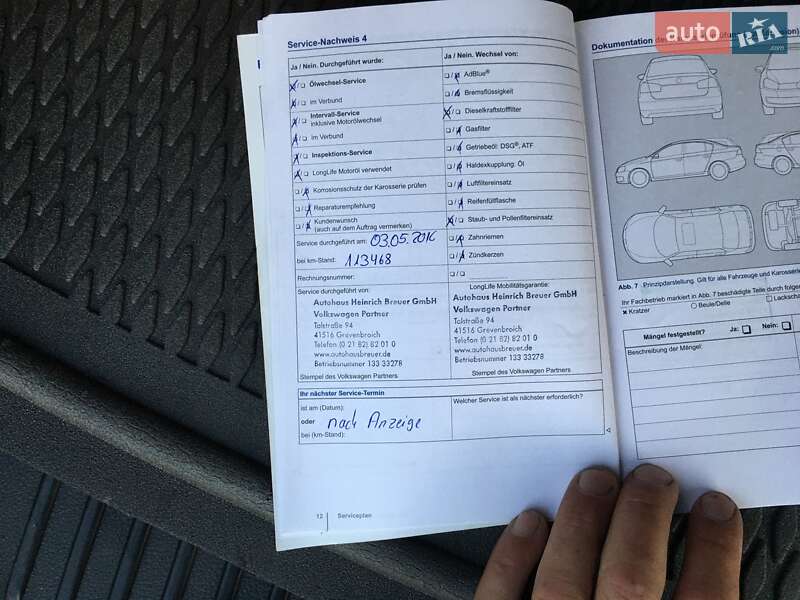 Service-Nachweis 4
Ja / Nein. Durchgeführt wurde:
Ölwechsel-Service
im Verbund
Intervall-Service
inklusive Motorölwechsel
im Verbund
Inspektions-Service
LongLife Motoröl verwendet
Korrosionsschutz der Karosserie prüfen
Reparaturempfehlung
Kundenwunsch
(auch auf dem Auftrag vermerken)
Service durchgeführt am: 03.05.2016
bei km-Stand: 113468
Rechnungsnummer:
Ja / Nein. Wechsel von:
AdBlue®
Bremsflüssigkeit
Dieselkraftstofffilter
Gasfilter
Getriebeöl: DSG®, ATF
Haldexkupplung: Öl
Luftfiltereinsatz
Reifenfüllflasche
Staub- und Pollenfiltereinsatz
Zahnriemen
Zündkerzen
Service durchgeführt von:
Autohaus Heinrich Breuer GmbH
Volkswagen Partner
Talstraße 94
41516 Grevenbroich
Telefon (0 21 82) 82 01 0
www.autohausbreuer.de
Betriebsnummer 133 33278
Stempel des Volkswagen Partners
LongLife Mobilitätsgarantie:
Autohaus Heinrich Breuer GmbH
Volkswagen Partner
Talstraße 94
41516 Grevenbroich
Telefon (0 21 82) 82 01 0
www.autohausbreuer.de
Betriebsnummer 133 33278
Stempel des Volkswagen Partners
Ihr nächster Service-Termin
ist am (Datum):
oder nach Anzeige
bei (km-Stand):
Welcher Service ist als nächster erforderlich?
12 Serviceplan
Dokumentation
auto RIA .com
Abb. 7 Prinzipdarstellung. Gilt für alle Fahrzeuge und
Ihr Fachbetrieb markiert in Abb. 7 beschädigte Teile durch
Kratzer Beule/Delle
Mängel festgestellt? Ja: Nein:
Beschreibung der Mängel: